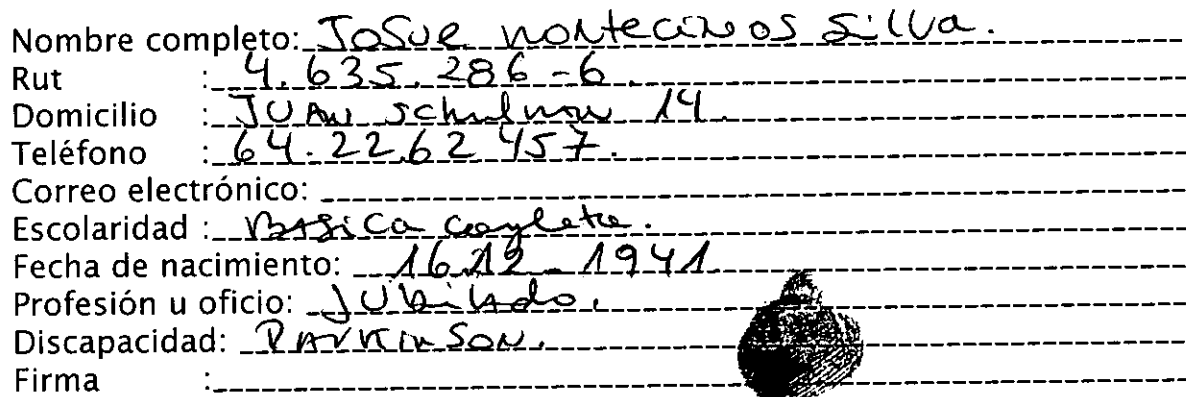 Nombre completo: Josue Montecinos Silva.
Rut : 4.635.286-6.
Domicilio : Juan 14.
Teléfono : 64.2262457.
Correo electrónico:
Escolaridad : Basica completa.
Fecha de nacimiento: 16.12-1941
Profesión u oficio: Jubilado.
Discapacidad: Parkinson.
Firma :